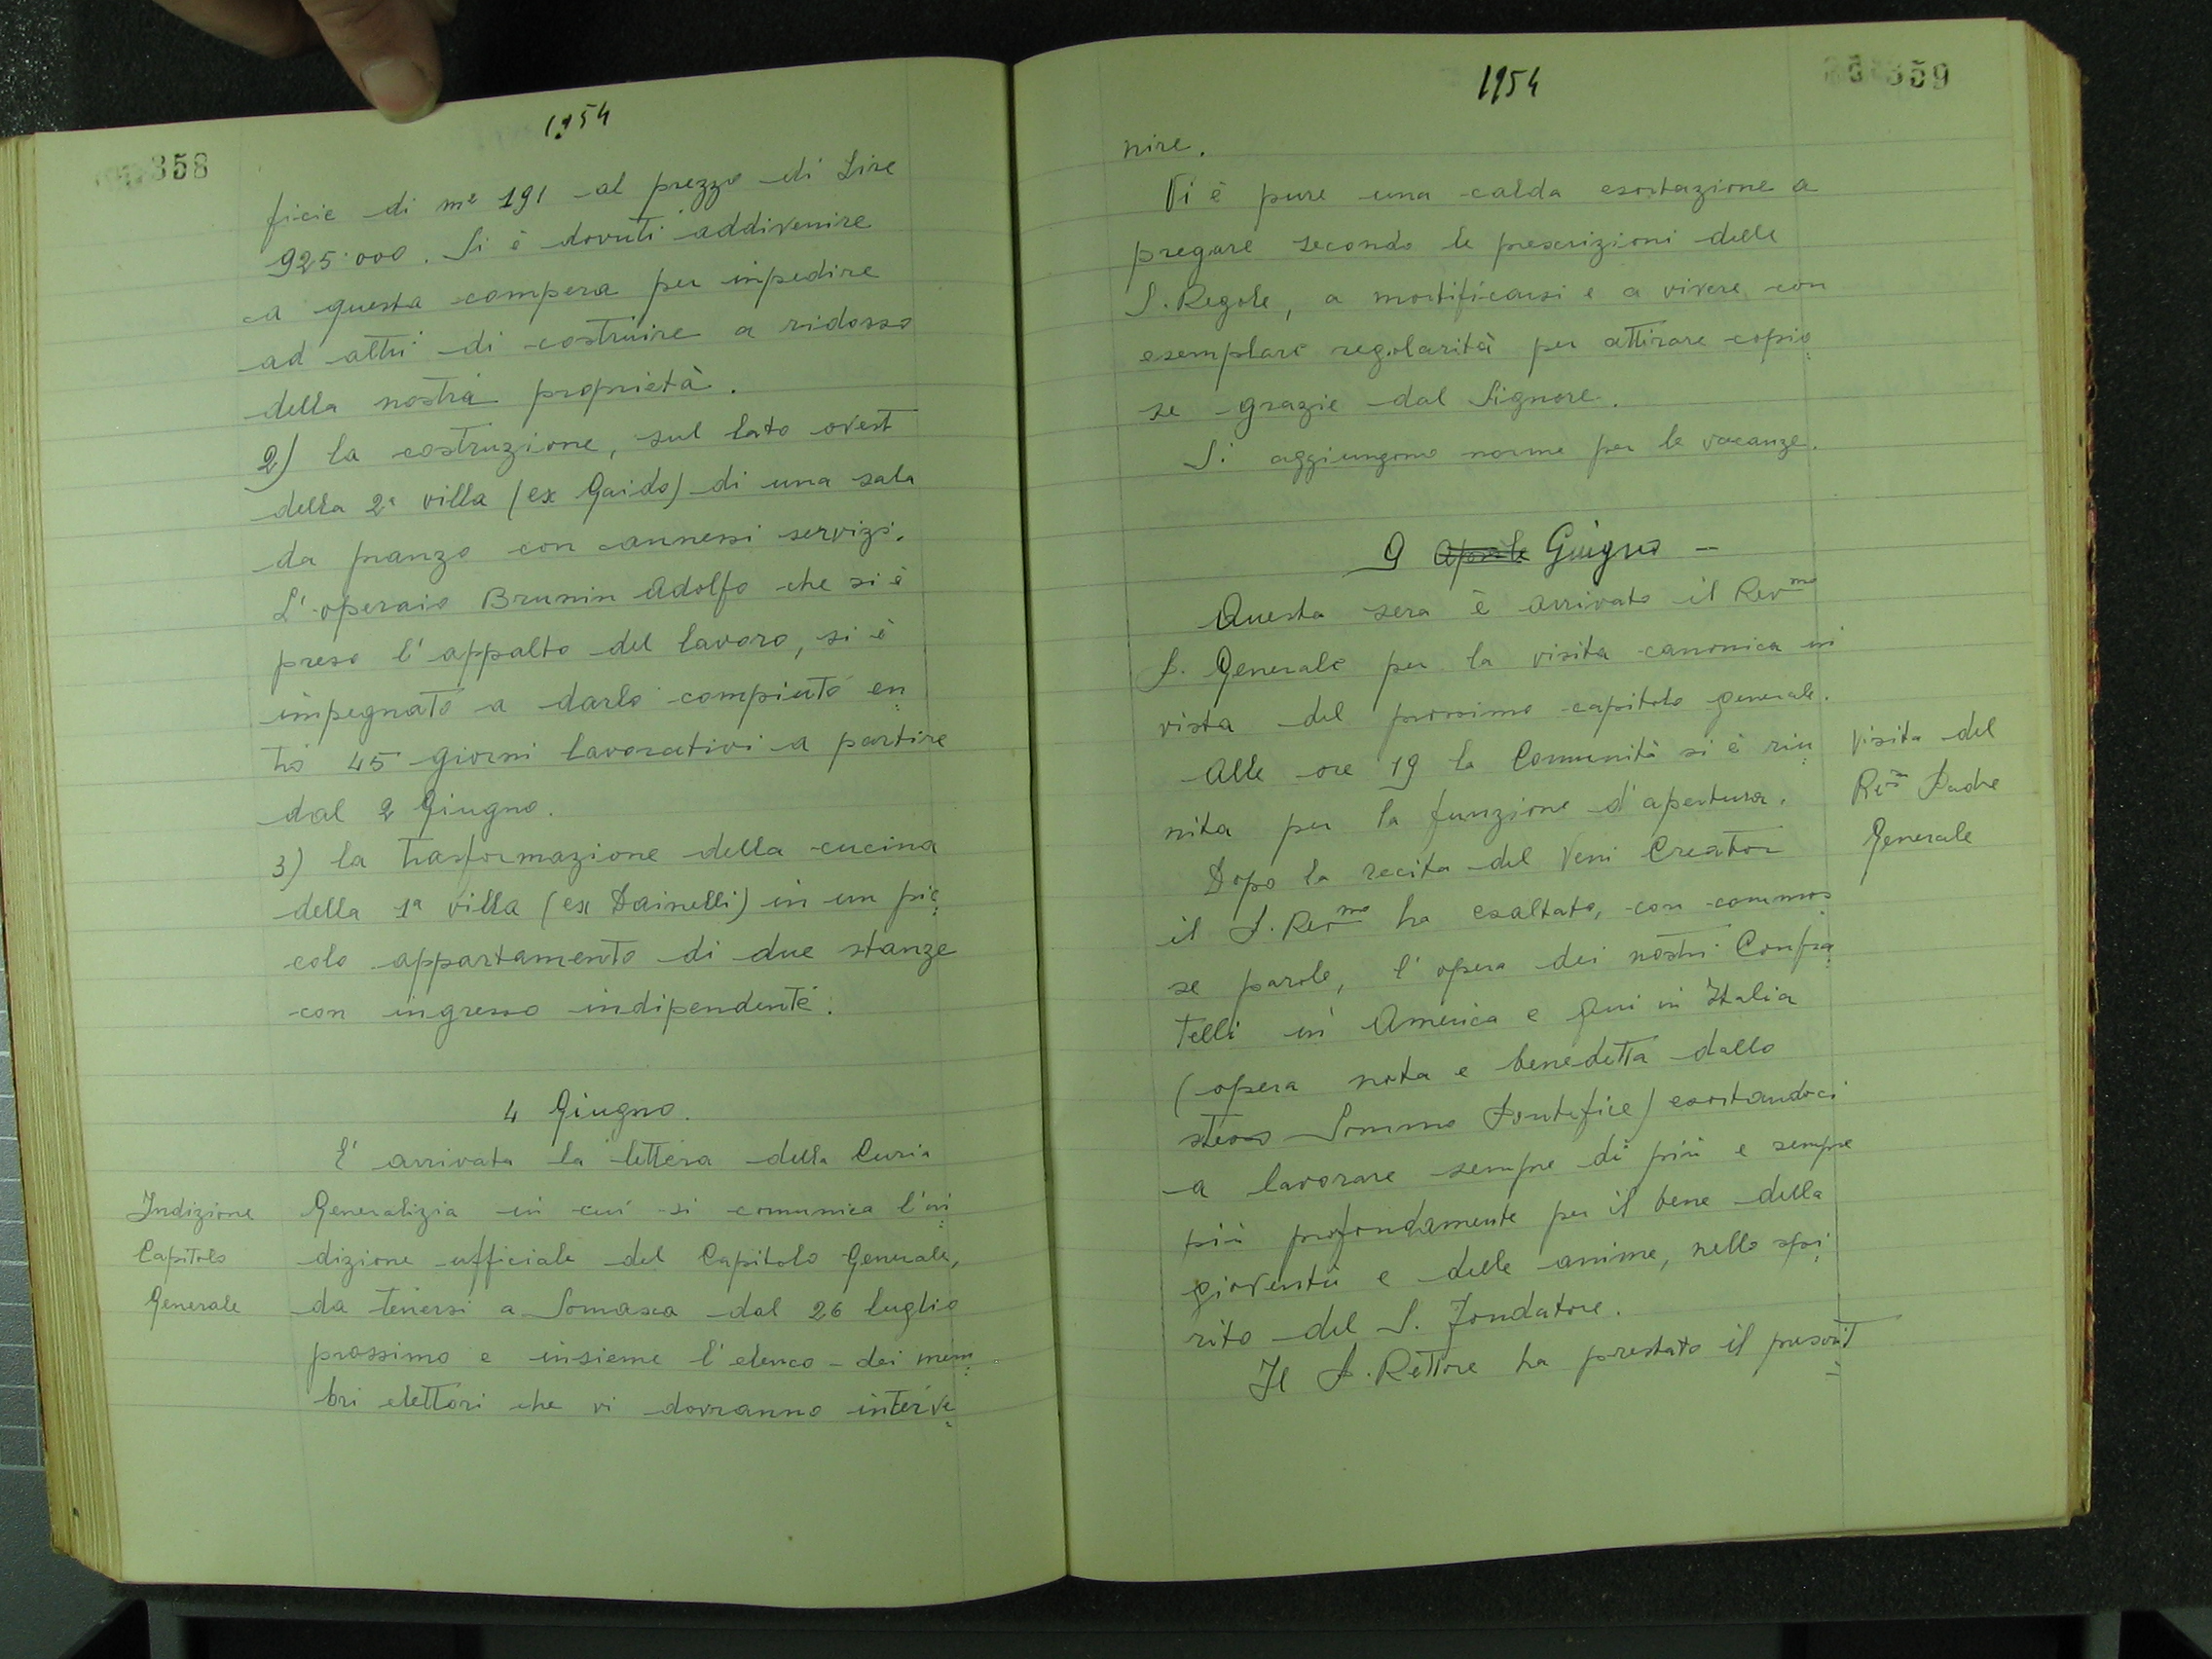 358
1954
ficie di m² 191 al prezzo di Lire
925.000. Si è dovuti addivenire
a questa compera per impedire
ad altri di costruire a ridosso
della nostra proprietà.
2) la costruzione, sul lato ovest
della 2ª villa (ex Gaido) di una sala
da pranzo con annessi servizi.
L'operaio Brunin Adolfo che si è
preso l'appalto del lavoro, si è
impegnato a darlo compiuto en
tro 45 giorni lavorativi a partire
dal 2 Giugno.
3) la trasformazione della cucina
della 1ª villa (ex Dainelli) in un pic
colo appartamento di due stanze
con ingresso indipendente.
4 Giugno.
E' arrivata la lettera della Curia
Indizione Capitolo Generale
Generalizia in cui si comunica l'in
dizione ufficiale del Capitolo Generale,
da tenersi a Somasca dal 26 luglio
prossimo e insieme l'elenco dei mem
bri elettori che vi dovranno interve
1954
359
nire.
Vi è pure una calda esortazione a
pregare secondo le prescrizioni delle
S. Regole, a mortificarsi e a vivere con
esemplare regolarità per attirare copio
se grazie dal Signore.
Si aggiungono norme per le vacanze.
9 Aprile Giugno -
Questa sera è arrivato il Revmo
P. Generale per la visita canonica in
vista del prossimo capitolo generale.
Alle ore 19 la Comunità si è riu
nita per la funzione d'apertura.
Visita del
Rev.mo Padre
Generale
Dopo la recita del Veni Creator
il P. Revmo ha esaltato, con commos
se parole, l'opera dei nostri Confra
telli in America e qui in Italia
(opera nota e benedetta dallo
stesso Sommo Pontefice) esortandoci
a lavorare sempre di più e sempre
più profondamente per il bene della
gioventù e delle anime, nello spi
rito del S. Fondatore.
Il P. Rettore ha prestato il prescrit